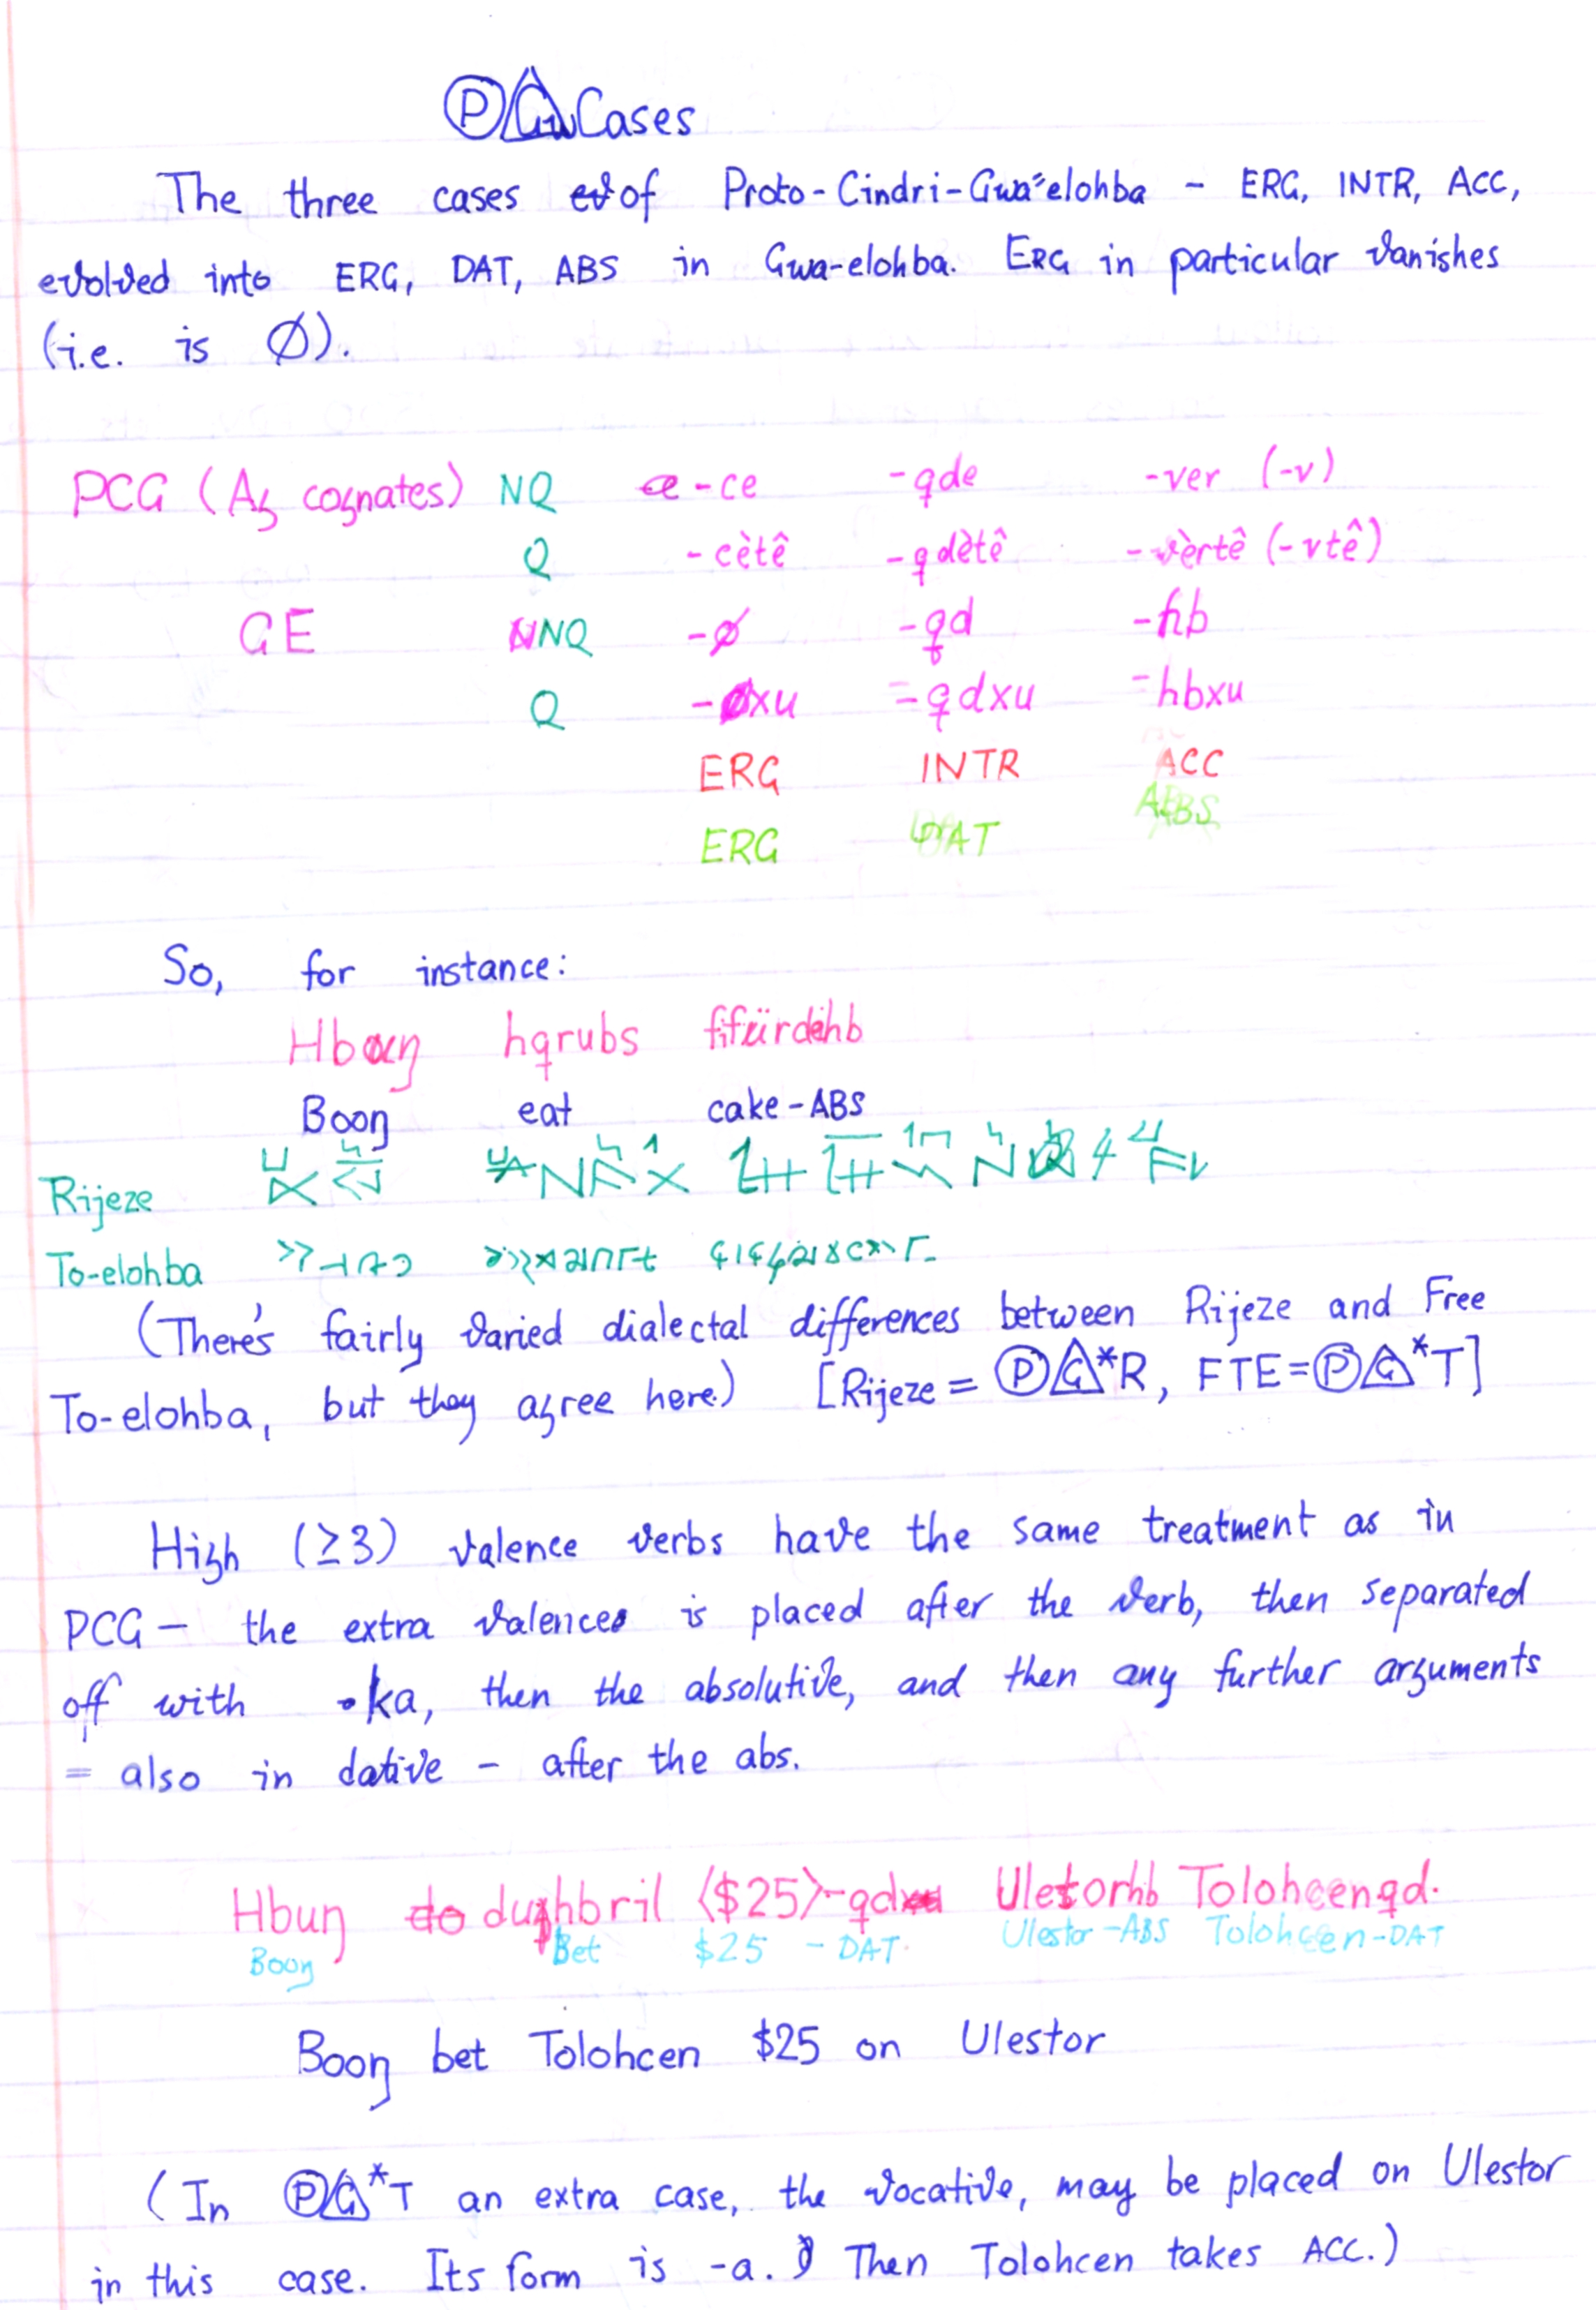 Ⓟ Cases
The three cases of Proto-Cindri-Gwa-elohba - ERG, INTR, ACC,
evolved into ERG, DAT, ABS in Gwa-elohba. ERG in particular vanishes
(i.e. is Ø).
PCG (Ag cognates) NQ -ce -qde -ver (-v)
Q -cètê -qdètê -vèrtê (-vtê)
GE NQ -ø -qd -hb
Q -xu -qdxu -hbxu
ERG INTR ACC
ERG DAT ABS
So, for instance:
hqrubs
Booŋ eat cake-ABS
Rijeze
To-elohba
(There's fairly varied dialectal differences between Rijeze and Free
To-elohba, but they agree here.) [Rijeze = ⓅG*R, FTE=ⓅG*T]
High (≥3) valence verbs have the same treatment as in
PCG - the extra valence is placed after the verb, then separated
off with ka, then the absolutive, and then any further arguments
= also in dative - after the abs.
Hbuŋ duŋhbril ⟨$25⟩-qd Ulestorhb Tolohcenqd.
Booŋ Bet $25 -DAT. Ulestor-ABS Tolohcen-DAT
Booŋ bet Tolohcen $25 on Ulestor
(In ⓅG*T an extra case, the vocative, may be placed on Ulestor
in this case. Its form is -a. Then Tolohcen takes ACC.)